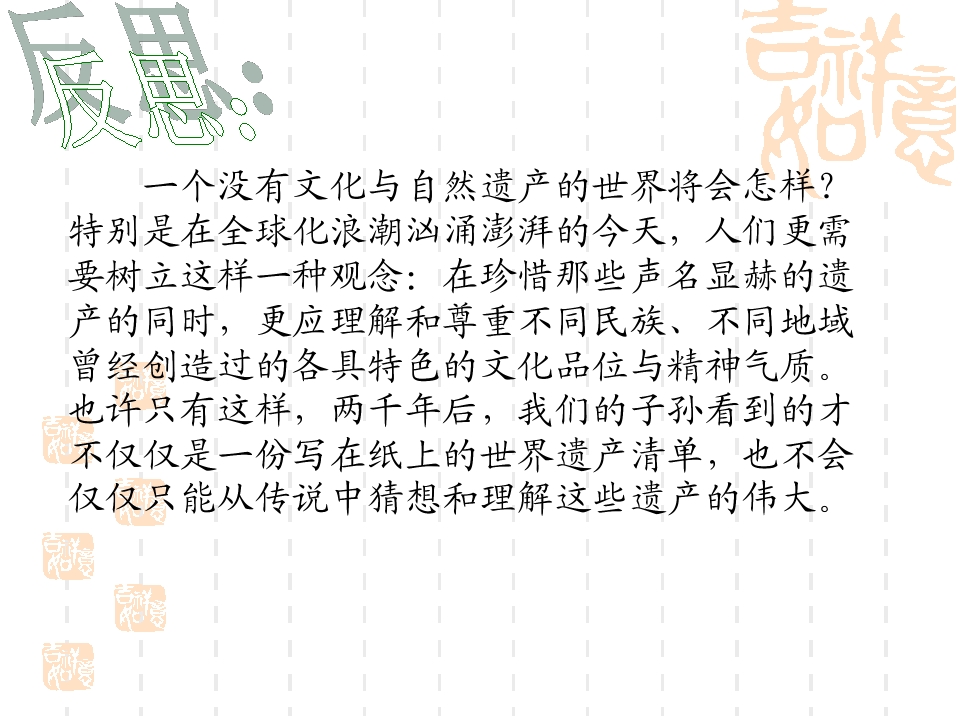 反思：
吉祥如意
一个没有文化与自然遗产的世界将会怎样？
特别是在全球化浪潮汹涌澎湃的今天，人们更需
要树立这样一种观念：在珍惜那些声名显赫的遗
产的同时，更应理解和尊重不同民族、不同地域
曾经创造过的各具特色的文化品位与精神气质。
也许只有这样，两千年后，我们的子孙看到的才
不仅仅是一份写在纸上的世界遗产清单，也不会
仅仅只能从传说中猜想和理解这些遗产的伟大。
吉祥如意
吉祥如意
吉祥如意
吉祥如意
吉祥如意
吉祥如意